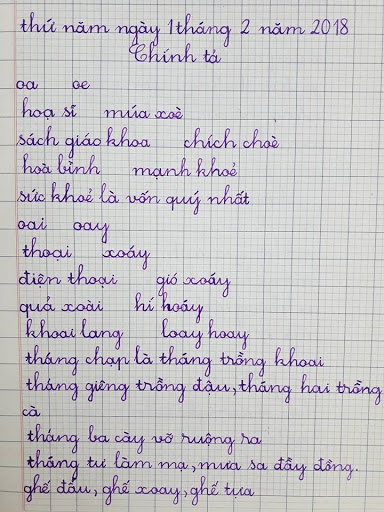 thứ năm ngày 1 tháng 2 năm 2018
Chính tả
oa oe
hoạ sĩ múa xoè
sách giáo khoa chích choè
hoà bình mạnh khoẻ
sức khoẻ là vốn quý nhất
oai oay
thoại xoáy
điện thoại gió xoáy
quả xoài hí hoáy
khoai lang loay hoay
tháng chạp là tháng trồng khoai
tháng giêng trồng đậu, tháng hai trồng
cà
tháng ba cày vỡ ruộng ra
tháng tư làm mạ, mưa sa đầy đồng.
ghế đẩu, ghế xoay, ghế tựa